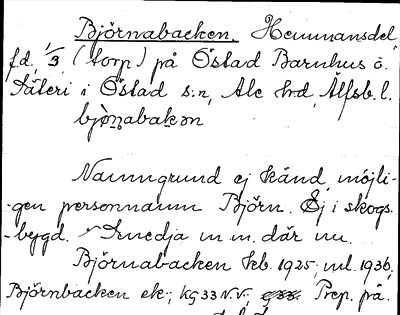 Björnabacken. Hemmansdel
f.d. 1/3 (torp) på Östad Barnhus o.
Säteri i Östad s:n, Ale hd, Älfsb. l.
bjò̱ṇabakən
Namngrund ej känd, möjli-
-gen personnamn Björn. Ej i skogs-
-bygd. Smedja m m. där nu.
Björnabacken kb. 1925; ml. 1936.
Björnbacken ek.; kg 33 N.V.; Prep. på.